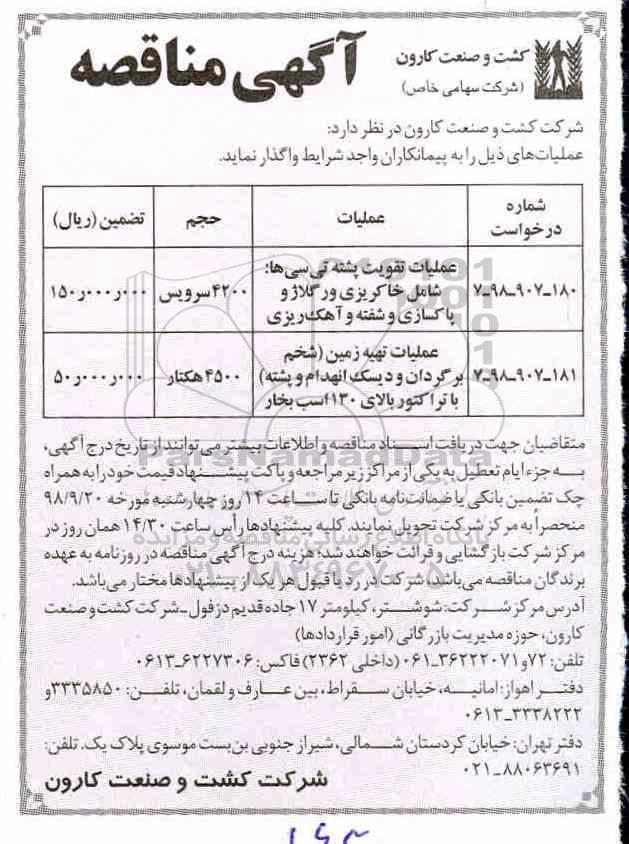 کشت و صنعت کارون
(شرکت سهامی خاص)
آگهی مناقصه
شرکت کشت و صنعت کارون در نظر دارد:
عملیات‌های ذیل را به پیمانکاران واجد شرایط واگذار نماید.
شماره درخواست | عملیات | حجم | تضمین (ریال)
۷-۹۸-۹۰۷-۱۸۰ | عملیات تقویت پشته تی‌سی‌ها: شامل خاکریزی ور گلاژ و پاکسازی و شفته و آهک‌ریزی | ۴۲۰۰ سرویس | ۱۵۰ر۰۰۰ر۰۰۰
۷-۹۸-۹۰۷-۱۸۱ | عملیات تهیه زمین (شخم برگردان و دیسک انهدام و پشته) با تراکتور بالای ۱۳۰ اسب بخار | ۴۵۰۰ هکتار | ۵۰ر۰۰۰ر۰۰۰
متقاضیان جهت دریافت اسناد مناقصه و اطلاعات بیشتر می‌توانند از تاریخ درج آگهی،
به جزء ایام تعطیل به یکی از مراکز زیر مراجعه و پاکت پیشنهاد قیمت خود را به همراه
چک تضمین بانکی یا ضمانت‌نامه بانکی تا ساعت ۱۴ روز چهارشنبه مورخه ۹۸/۹/۲۰
منحصراً به مرکز شرکت تحویل نمایند. کلیه پیشنهادها رأس ساعت ۱۴/۳۰ همان روز در
مرکز شرکت بازگشایی و قرائت خواهند شد؛ هزینه درج آگهی مناقصه در روزنامه به عهده
برندگان مناقصه می‌باشد، شرکت در رد یا قبول هر یک از پیشنهادها مختار می‌باشد.
آدرس مرکز شرکت: شوشتر، کیلومتر ۱۷ جاده قدیم دزفول-شرکت کشت و صنعت
کارون، حوزه مدیریت بازرگانی (امور قراردادها)
تلفن: ۷۲ و ۳۶۲۲۲۰۷۱-۰۶۱ (داخلی ۲۳۶۲) فاکس: ۶۲۲۷۳۰۶-۰۶۱۳
دفتر اهواز: امانیه، خیابان سقراط، بین عارف و لقمان، تلفن: ۳۳۳۵۸۵۰ و
۳۳۳۸۲۲۲-۰۶۱۳
دفتر تهران: خیابان کردستان شمالی، شیراز جنوبی بن‌بست موسوی پلاک یک. تلفن:
۸۸۰۶۳۶۹۱-۰۲۱
شرکت کشت و صنعت کارون
ParsNamadData
پایگاه اطلاع رسانی مناقصه و مزایده